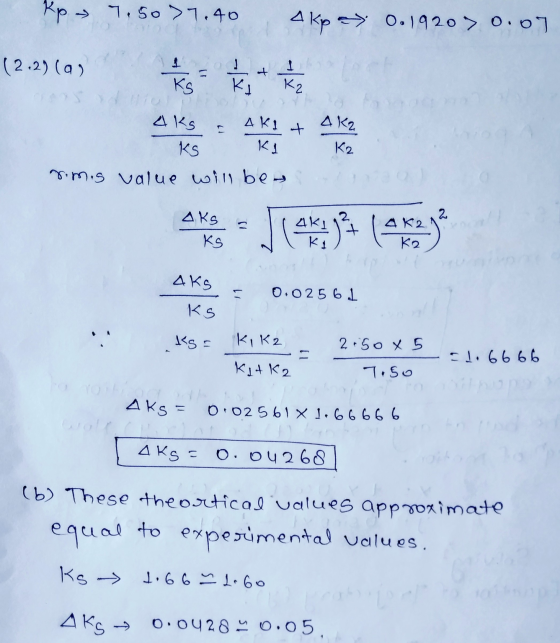 Kp → 7.50 > 7.40 ΔKp ⇒ 0.1920 > 0.07
(2.2) (a) 1/Ks = 1/K1 + 1/K2
ΔKs/Ks = ΔK1/K1 + ΔK2/K2
r.m.s value will be →
ΔKs/Ks = √((ΔK1/K1)² + (ΔK2/K2)²)
ΔKs/Ks = 0.02561
∵ Ks = K1K2/(K1+K2) = 2.50 × 5/7.50 = 1.6666
ΔKs = 0.02561 × 1.66666
ΔKs = 0.04268
(b) These theortical values approximate
equal to experimental values.
Ks → 1.66 ≃ 1.60
ΔKs → 0.0428 ≃ 0.05.